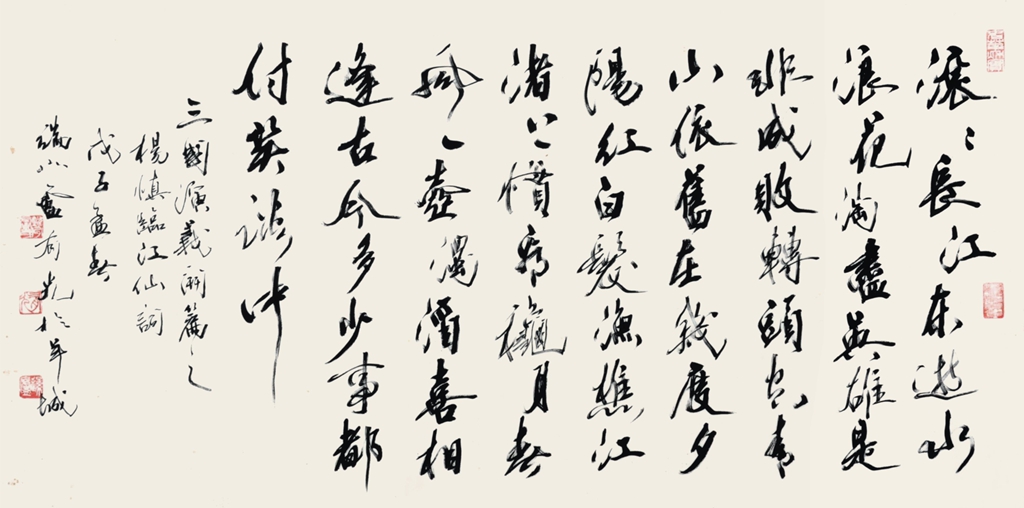 滾〻長江東逝水
浪花淘盡英雄是
非成敗轉頭空青
山依舊在幾度夕
陽紅白髮漁樵江
渚上慣看秋月春
風一壺濁酒喜相
逢古今多少事都
付笑談中
三國演義開篇之
楊慎臨江仙詞
戊子孟春
盧有光於羊城